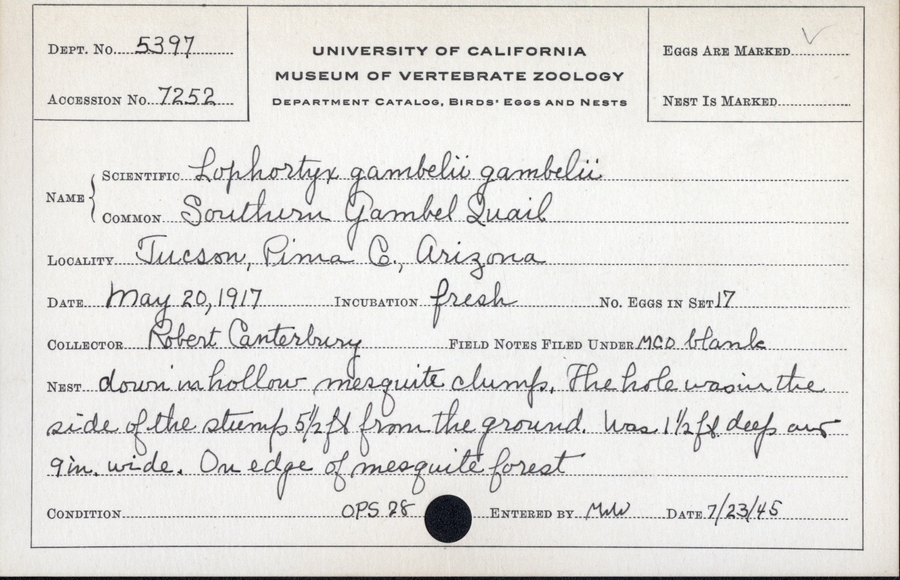 Dept. No. 5397
Accession No. 7252
UNIVERSITY OF CALIFORNIA
MUSEUM OF VERTEBRATE ZOOLOGY
Department Catalog, Birds' Eggs and Nests
Eggs Are Marked ✓
Nest Is Marked
Name { Scientific Lophortyx gambelii gambelii
Common Southern Gambel Quail
Locality Tucson, Pima Co., Arizona
Date May 20, 1917 Incubation fresh No. Eggs in Set 17
Collector Robert Canterbury Field Notes Filed Under MCO blank
Nest down in hollow mesquite clump. The hole was in the
side of the stump 5½ ft from the ground. Was 1½ ft deep and
9 in. wide. On edge of mesquite forest
Condition OPS 28 Entered by MWW Date 7/23/45